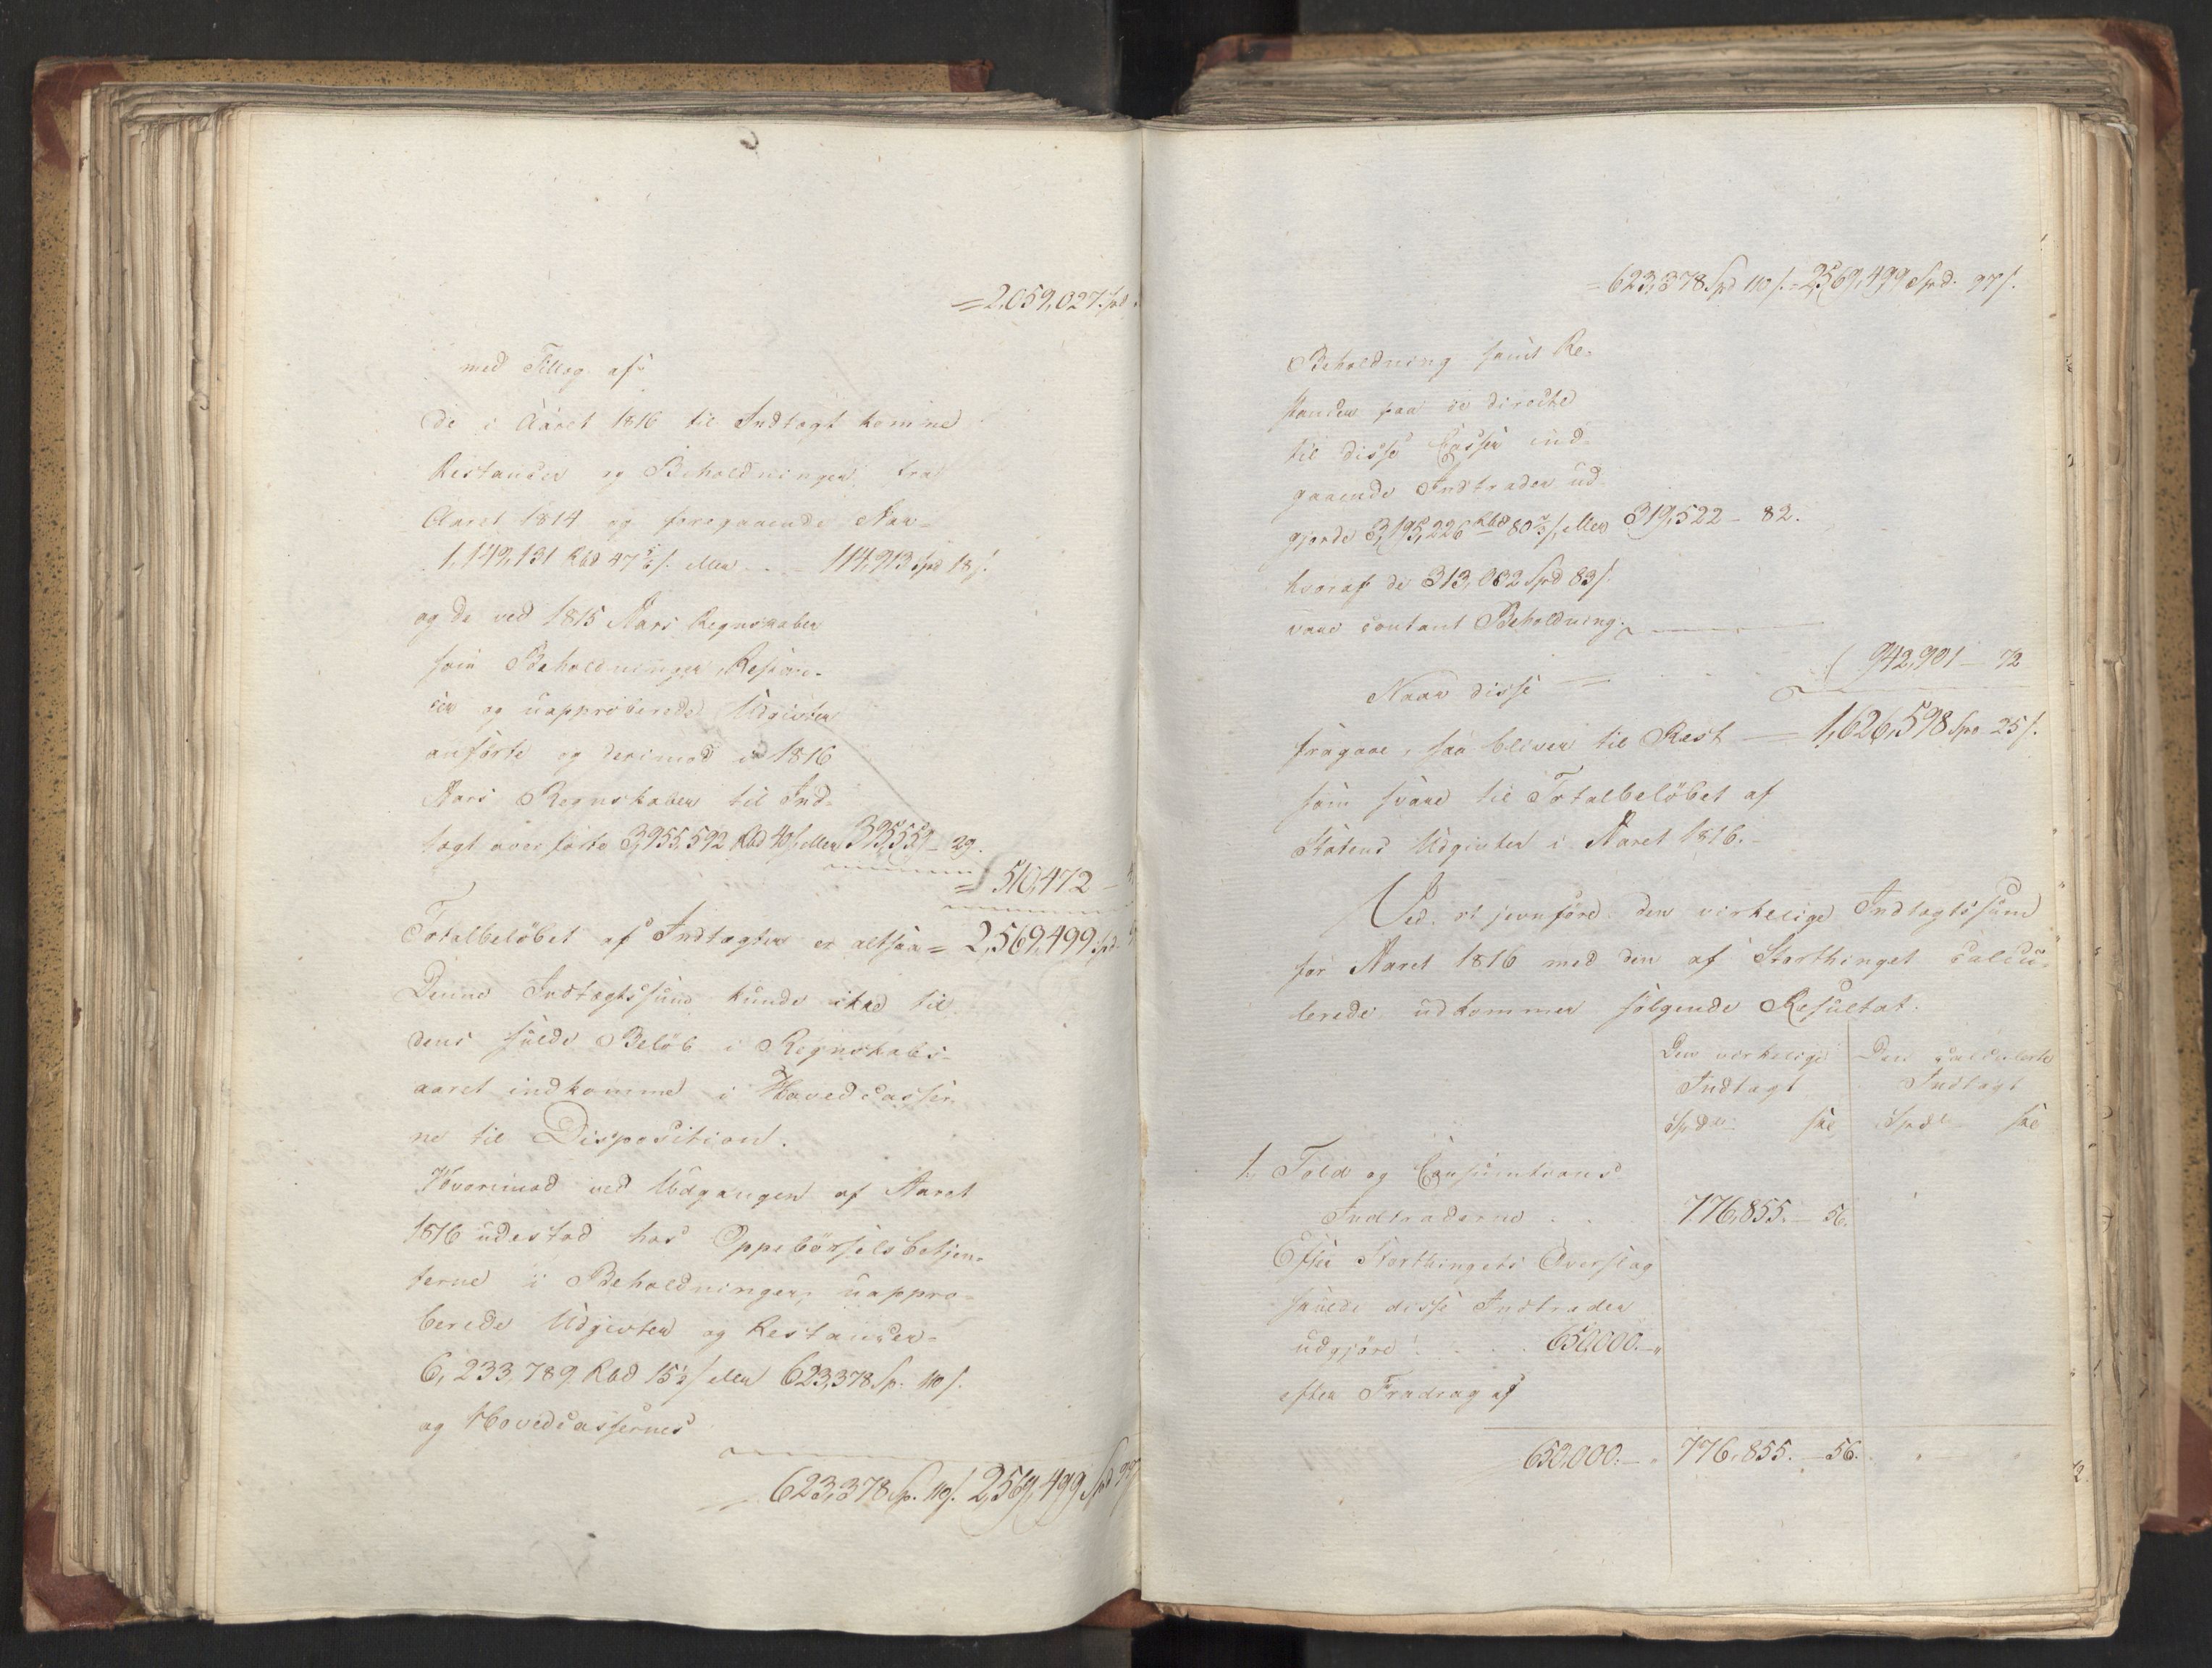 = 2,059,027. Spd
med Tillæg af
de i Aaret 1816 til Indtægt komne
Restancer og Beholdninger fra
Aaret 1814 og foregaaende Aar
1,149,131 Rbd 47 5/6 s. eller - - 114,913 Spd 18 s.
og de ved 1815 Aars Regnskaber
som Beholdninger, Restan-
cer og uapproberede Udgivter
anførte og derimod i 1816
Aars Regnskaber til Ind-
tægt overførte 3,955,592 Rbd 40 s. eller 395,559 - 29.
= 510,472 -
Totalbeløbet af Indtægten er altsaa = 2,569,499 Spd.
Denne Indtægtssum kunde ikke til
dens fulde Beløb i Regnskabs-
aaret indkomme i Hovedcasser-
ne til Disposition.
Hvorimod ved Udgangen af Aaret
1816 udestod hos Oppebørselsbetjen-
terne i Beholdninger, uappro-
berede Udgivter og Restancer -
6,233,789 Rbd 15 1/2 s. eller 623,378 Sp. 110 s.
og Hovedcassernes
623,378 Sp. 110 s. 2,569,499 Spd 97
= 623,378 Spd 110 s. = 2,569,499 Spd. 97 s.
Beholdning samt Re-
stancer paa de directe
til disse Casser ind-
gaaende Indtrader ud
gjorde 3,195,226 Rbd 80 2/3 s. eller 319,522 - 82.
hvoraf de 313,082 Spd 83 s.
vare contant Beholdning.
942,901 - 72
Naar disse
fragaae, saa bliver til Rest - 1,626,598 Spd 25 s.
som svare til Totalbeløbet af
Statens Udgivter i Aaret 1816. -
Ved at jevnføre den virkelige Indtægtssum
for Aaret 1816 med den af Storthinget calcu-
lerede udkommer følgende Resultat.
Den virkelige Den calculerte
Indtægt Indtægt
Spdlr. sk Spdlr. sk
1, Told og Consumtions
Indtraderne . . 776,855. - 56.
Efter Storthingets Overslag
skulde disse Indtrader
udgjøre . . . 650,000. - "
efter Fradrag af
650,000. - " 776,855. - 56.